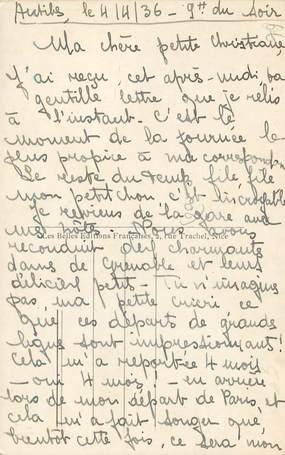 Antibes, le 4/4/36 - 9ʰ du soir
Ma chère petite Christiane,
J'ai reçu, cet après-midi ta
gentille lettre que je relis
à l'instant. C'est le
moment de la journée le
plus propice à ma correspondance
Le reste du temps file, file
mon petit chon, c'est incroyable
Je reviens de la gare avec
mes Nous avons
Les Belles Editions Françaises, 2, rue Trachel, Nice
reconduit des charmants
dames de Grenoble et leurs
délicieux petits - tu n'imagines
pas, ma petite ce
que ces départs de grandes
lignes sont impressionnants!
Cela m'a reportée 4 mois
- oui 4 mois - en arrière
lors de mon départ de Paris, et
cela m'a fait songer que,
bientôt cette fois, ce sera mon